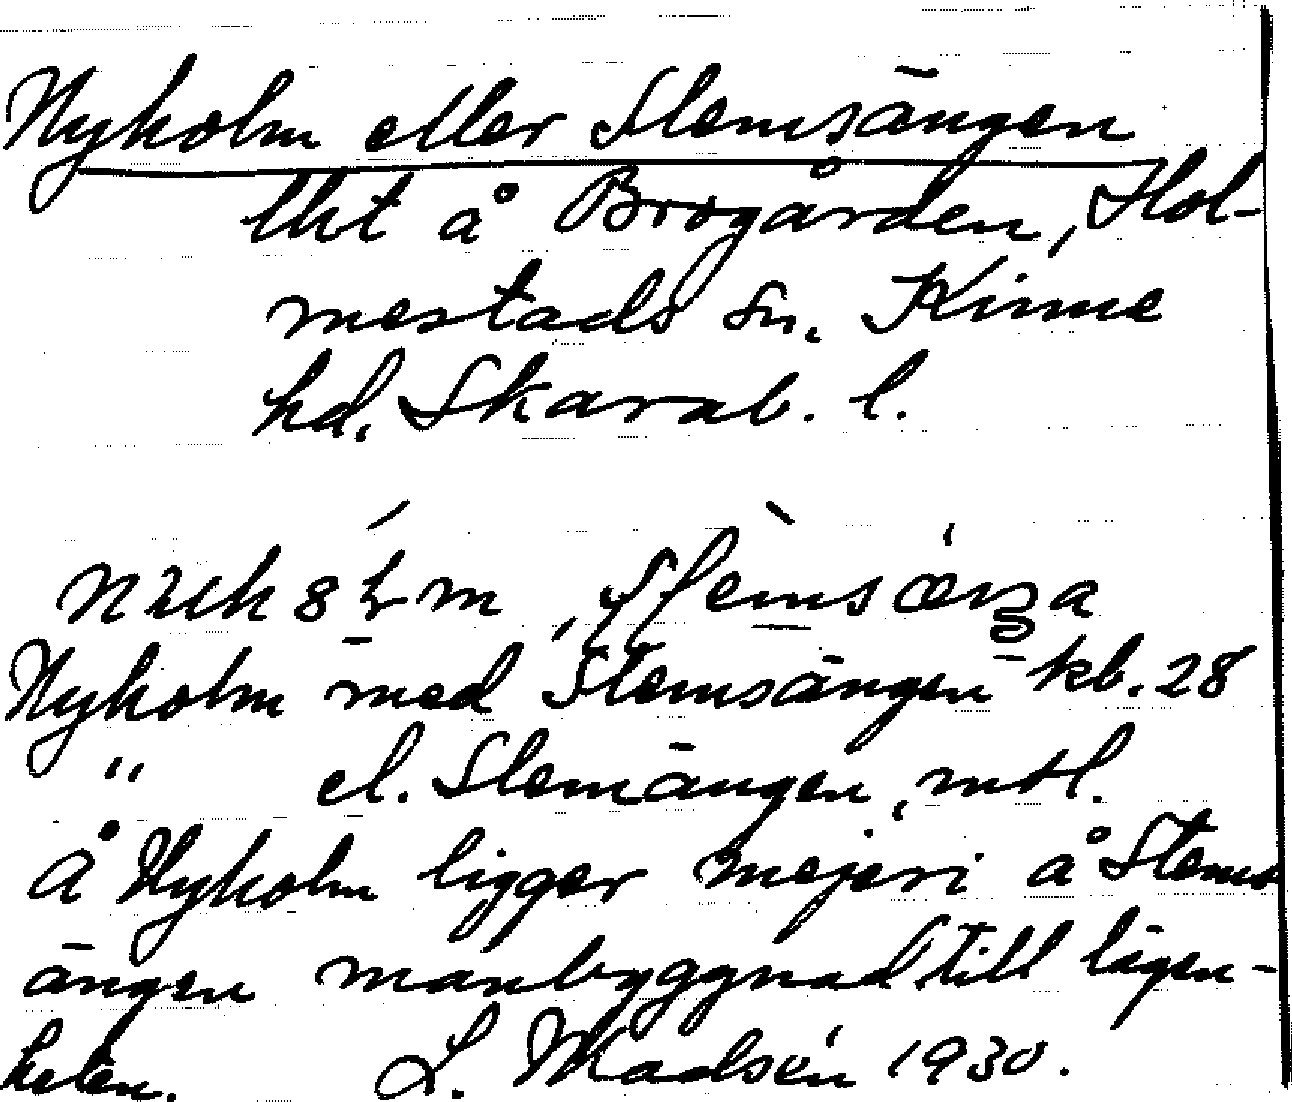 Nyholm eller Slemsängen
lht å Brogården, Hol-
mestads sn. Kinne
hd. Skarab. l.
Slemsänga
Nyholm med Slemsängen kb. 28
" el. Slemängen, mtl.
Å Nyholm ligger mejeri å Slems
ängen manbyggnad till lägen-
heten. L. Madsén 1930.